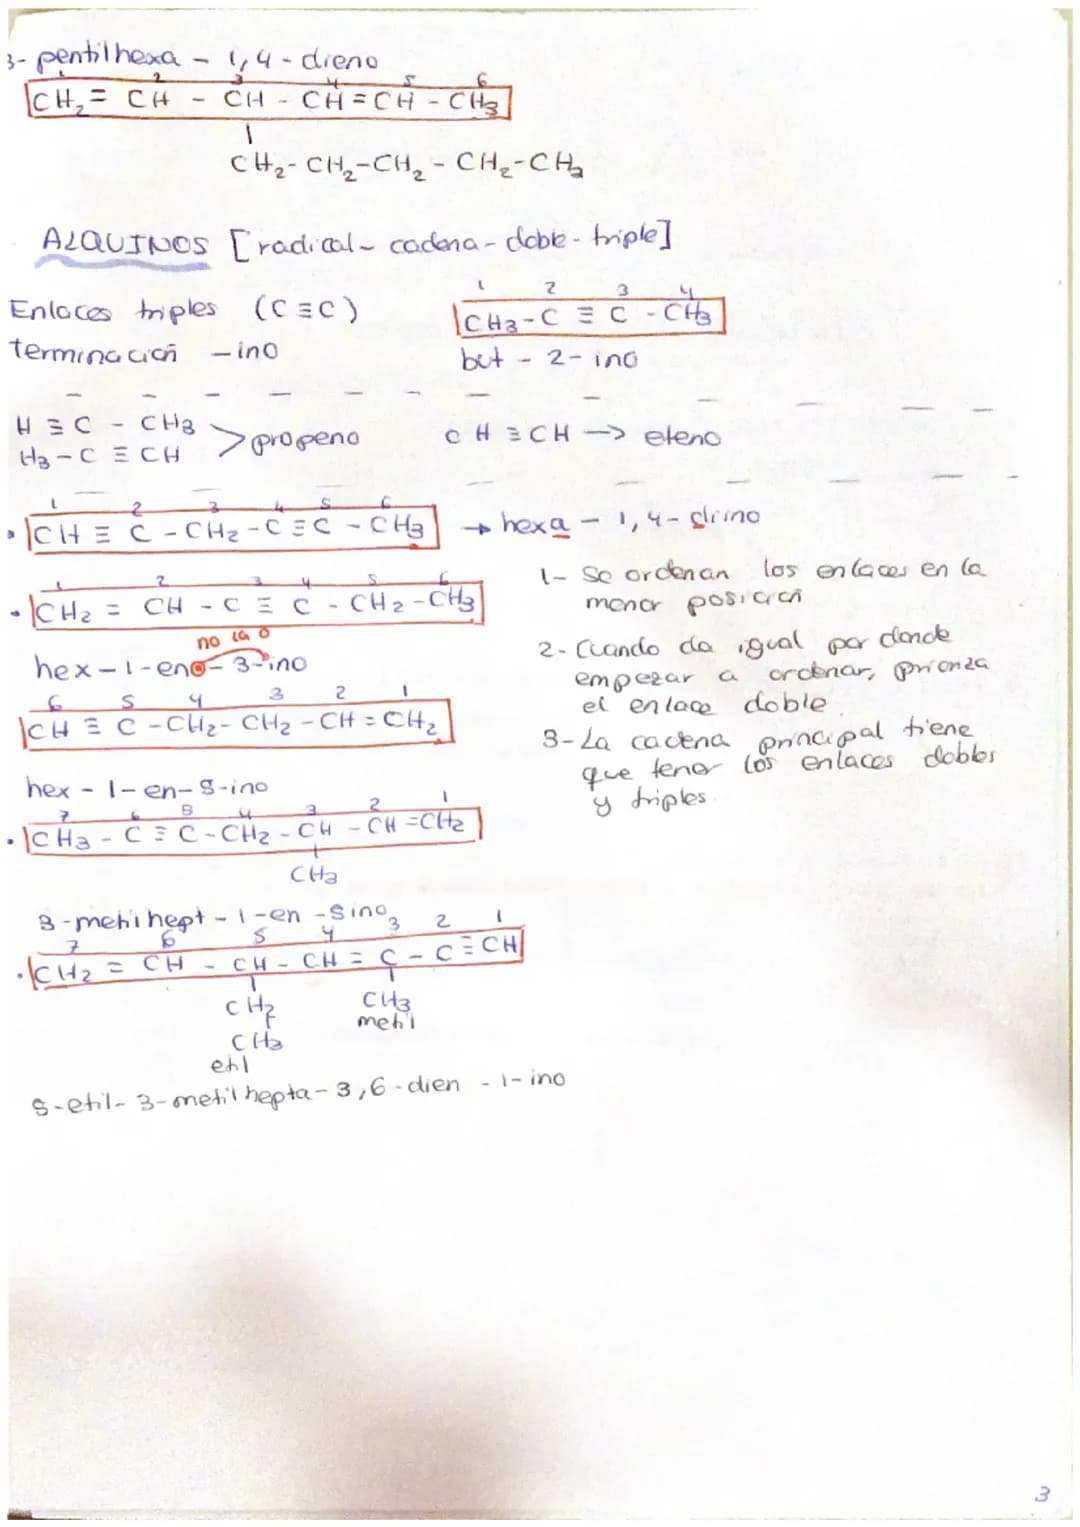 3- pentilhexa - 1,4-dieno
1 2 3 4 5 6
CH₂ = CH - CH - CH = CH - CH₃
CH₂-CH₂-CH₂-CH₂-CH₃
ALQUINOS [radical - cadena - doble - triple]
Enlaces triples (C≡C)
terminación -ino
1 2 3 4
CH₃-C ≡ C - CH₃
but - 2- ino
H ≡ C - CH₃
H₃ - C ≡ CH
> propeno
CH ≡ CH → eteno
1 2 3 4 5 6
CH ≡ C - CH₂ - C ≡ C - CH₃ → hexa - 1,4- diino
1 2 3 4 5 6
CH₂ = CH - C ≡ C - CH₂ - CH₃
no la o
hex-1-eno-3-ino
6 5 4 3 2 1
CH ≡ C - CH₂- CH₂ - CH = CH₂
hex - 1- en- 5-ino
7 6 5 4 3 2 1
CH₃ - C ≡ C - CH₂ - CH - CH = CH₂
CH₃
3-metilhept - 1-en -5ino
7 6 5 4 3 2 1
CH₂ = CH - CH - CH = C - C ≡ CH
CH₂ CH₃
CH₃ metil
etil
5-etil- 3-metilhepta- 3,6-dien - 1- ino
1- Se ordenan los enlaces en la
menor posición
2- Cuando da igual por donde
empezar a ordenar, prioriza
el enlace doble
3- La cadena principal tiene
que tener los enlaces dobles
y triples.
3